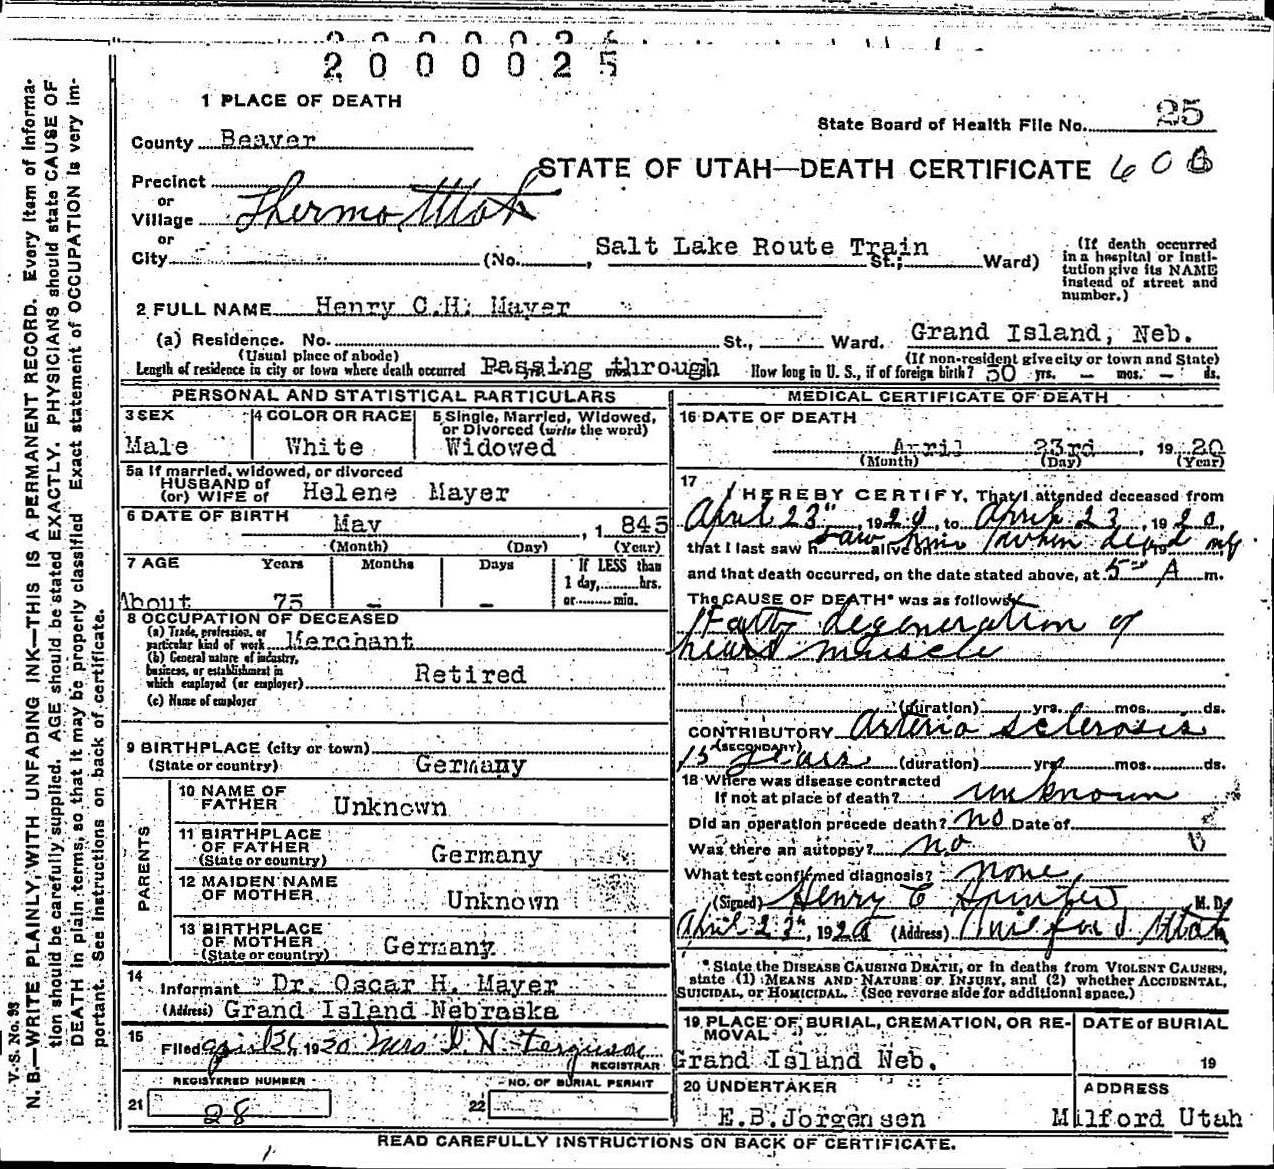 2 0 0 0 0 2 5
1 PLACE OF DEATH
State Board of Health File No. 25
County Beaver
STATE OF UTAH—DEATH CERTIFICATE 600
Precinct
or
Village Thermo Utah
or
City (No. , Salt Lake Route Train St.; Ward)
(If death occurred in a hospital or insti-
tution give its NAME
instead of street and
number.)
2 FULL NAME Henry C.H. Mayer
(a) Residence. No. St., Ward. Grand Island, Neb.
(Usual place of abode) (If non-resident give city or town and State)
Length of residence in city or town where death occurred Passing through How long in U. S., if of foreign birth? 50 yrs. – mos. – ds.
PERSONAL AND STATISTICAL PARTICULARS
3 SEX
Male
4 COLOR OR RACE
White
5 Single, Married, Widowed,
or Divorced (write the word)
Widowed
5a If married, widowed, or divorced
HUSBAND of
(or) WIFE of Helene Mayer
6 DATE OF BIRTH May , 1 845
(Month) (Day) (Year)
7 AGE Years Months Days If LESS than
1 day, hrs.
or min.
About 75 – –
8 OCCUPATION OF DECEASED
(a) Trade, profession, or
particular kind of work Merchant
(b) General nature of industry,
business, or establishment in
which employed (or employer) Retired
(c) Name of employer
9 BIRTHPLACE (city or town)
(State or country) Germany
PARENTS
10 NAME OF
FATHER Unknown
11 BIRTHPLACE
OF FATHER
(State or country) Germany
12 MAIDEN NAME
OF MOTHER Unknown
13 BIRTHPLACE
OF MOTHER
(State or country) Germany
14
Informant Dr. Oscar H. Mayer
(Address) Grand Island Nebraska
15
Filed april 26, 1920 Mrs D. N. Ferguson
REGISTRAR
REGISTERED NUMBER
21 28
NO. OF BURIAL PERMIT
22
MEDICAL CERTIFICATE OF DEATH
16 DATE OF DEATH
April 23rd , 19 20
(Month) (Day) (Year)
17
I HEREBY CERTIFY, That I attended deceased from
April 23", 1920, to April 23, 1920,
that I last saw h alive on saw him when dead
and that death occurred, on the date stated above, at 5 A m.
The CAUSE OF DEATH* was as follows:
Fatty degeneration of
heart muscle
(duration) yrs. mos. ds.
CONTRIBUTORY Arterio sclerosis
(SECONDARY)
15 years (duration) yrs mos. ds.
18 Where was disease contracted
If not at place of death? unknown
Did an operation precede death? no Date of
Was there an autopsy? no
What test confirmed diagnosis? none
(Signed) Henry C Hunter M. D.
April 23rd, 1920 (Address) Milford Utah
* State the DISEASE CAUSING DEATH, or in deaths from VIOLENT CAUSES,
state (1) MEANS AND NATURE OF INJURY, and (2) whether ACCIDENTAL,
SUICIDAL, OR HOMICIDAL. (See reverse side for additional space.)
19 PLACE OF BURIAL, CREMATION, OR RE-
MOVAL
Grand Island Neb.
DATE of BURIAL
19
20 UNDERTAKER
E.B.Jorgensen
ADDRESS
Milford Utah
READ CAREFULLY INSTRUCTIONS ON BACK OF CERTIFICATE.
V.S. No. 98
N. B.—WRITE PLAINLY, WITH UNFADING INK—THIS IS A PERMANENT RECORD. Every item of informa-
tion should be carefully supplied. AGE should be stated EXACTLY. PHYSICIANS should state CAUSE OF
DEATH in plain terms, so that it may be properly classified Exact statement of OCCUPATION is very im-
portant. See instructions on back of certificate.